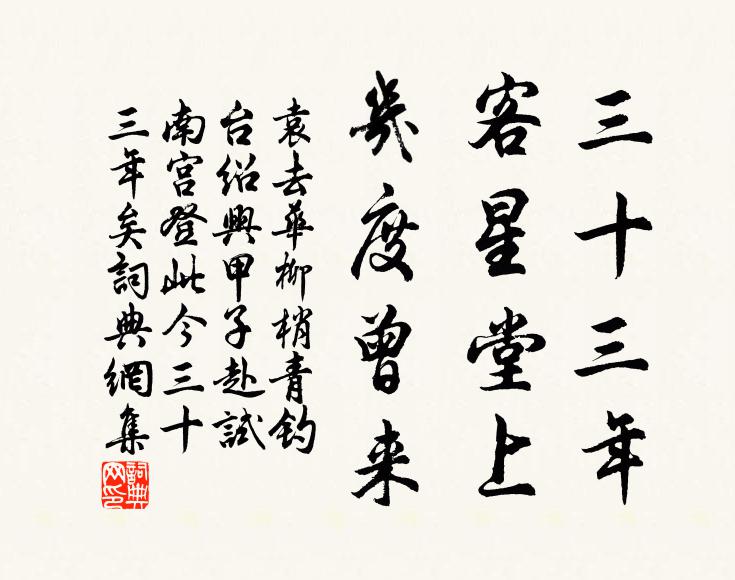 三十三年
客星堂上
幾度曾来
袁去華柳梢青釣
台绍興甲子赴試
南宫登此今三十
三年矣詞典網集
詞典网印